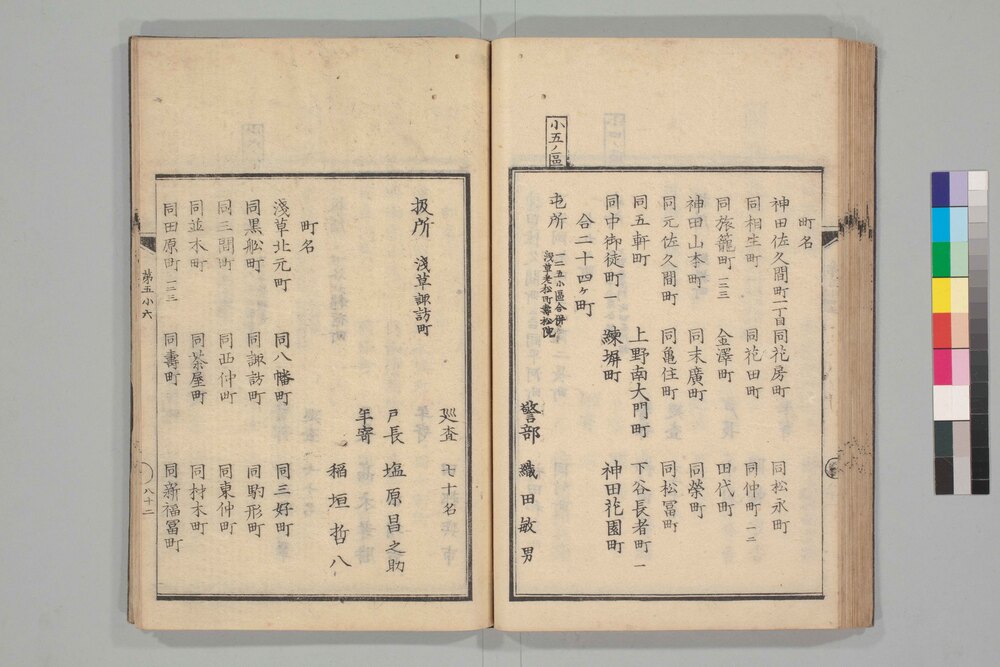 町名
神田佐久間町一丁目 同花房町 同松永町
同相生町 同花田町 同仲町一二
同旅籠町一二三 金澤町 田代町
神田山本町 同末廣町 同榮町
同元佐久間町 同亀住町 同松冨町
同五軒町 上野南大門町 下谷長者町一
同中御徒町一 練塀町 神田花園町
合二十四ヶ町
小五ノ區
屯所 一二五小區合併 淺草老松町壽松院
警部 織田敏男
巡査 七十名
扱所 淺草諏訪町
戸長 塩原昌之助
年寄 稲垣哲八
町名
淺草北元町 同八幡町 同三好町
同黒船町 同諏訪町 同駒形町
同三間町 同西仲町 同東仲町
同並木町 同茶屋町 同材木町
同田原町一二三 同壽町 同新福冨町
第五小六
八十二